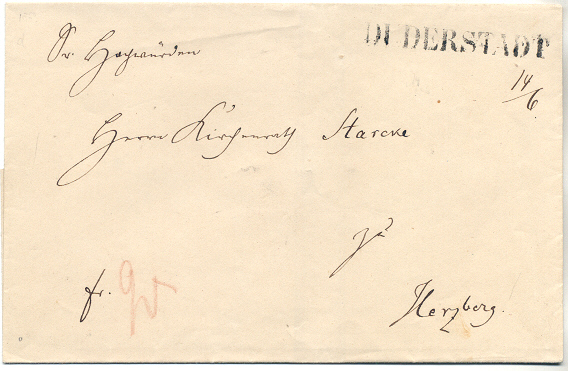 DUDERSTADT
14/6
Sr. Hochwürden
Herrn Kirchenrath Starcke
zu
Herzberg.
fr.